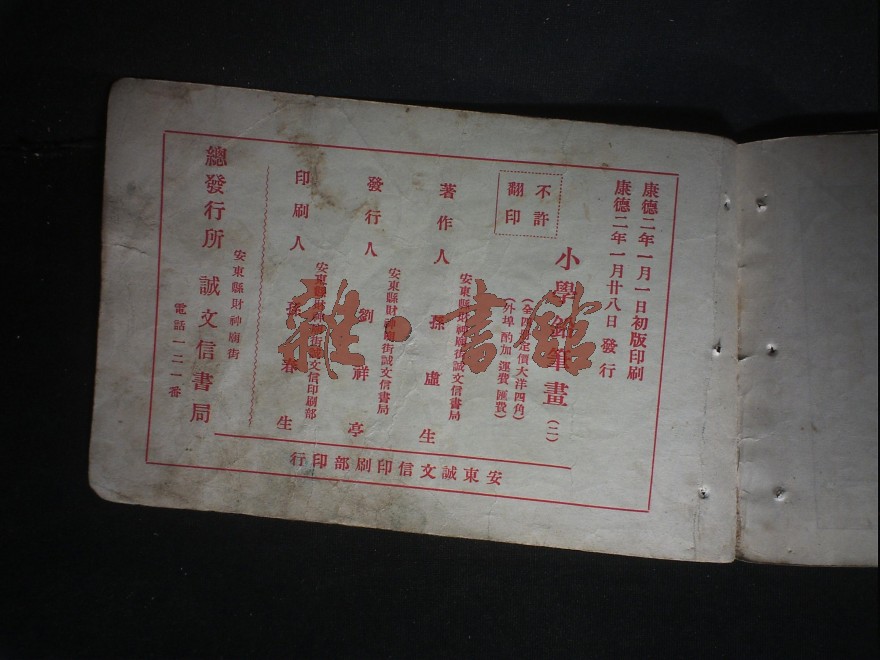 康德二年一月一日初版印刷
康德二年一月廿八日發行
小學鉛筆畫（二）
（全四册定價大洋四角）
（外埠酌加運費匯費）
不許
翻印
著作人 安東縣財神廟街誠文信書局
孫盧生
發行人 安東縣財神廟街誠文信書局
劉祥亭
印刷人 安東縣財神廟街誠文信印刷部
孫春生
總發行所 安東縣財神廟街
誠文信書局
電話一二一番
安東誠文信印刷部印行
雜·書館